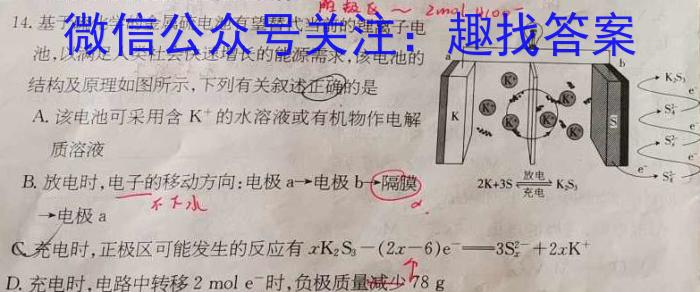 胞极区~2mol H100-
14.基于
微信公众号关注：趣找答案
的金属硫电池有望替代当前的锂离子电
池，以满足人类社会快速增长的能源需求，该电池的
结构及原理如图所示，下列有关叙述正确的是
A. 该电池可采用含 K⁺的水溶液或有机物作电解
质溶液
B. 放电时，电子的移动方向：电极 a→电极 b→隔膜
→电极 a
不下水
C. 充电时，正极区可能发生的反应有 xK₂S₃－(2x－6)e⁻══3Sₓ²⁻＋2xK⁺
D. 充电时，电路中转移 2 mol e⁻时，负极质量减少 78 g
a
b
K
K⁺
K⁺
K⁺
K⁺
K⁺
K⁺
S
K₂S₃
e⁻
e⁻
e⁻
2K+3S 放电 充电 K₂S₃